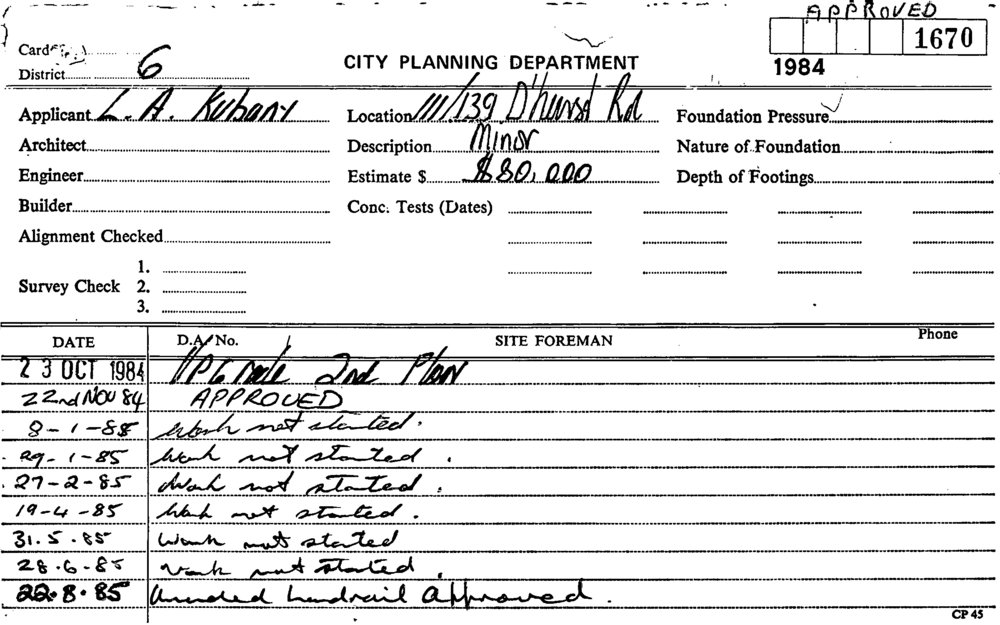 APPROVED
1670
1984
Card
District 6
CITY PLANNING DEPARTMENT
Applicant L. A. Kubany
Location 111/139 D'hurst Rd
Foundation Pressure
Architect
Description Minor
Nature of Foundation
Engineer
Estimate $ $80,000
Depth of Footings
Builder
Conc. Tests (Dates)
Alignment Checked
Survey Check 1.
2.
3.
DATE D.A. No. SITE FOREMAN Phone
23 OCT 1984 UPGrade 2nd Plan
22nd NOV 84 APPROVED
8-1-85 Work not started.
29-1-85 Work not started.
27-2-85 Work not started.
19-4-85 Work not started.
31.5.85 Work not started
28.6.85 Work not started.
22.8.85 Amended handrail approved.
CP 45